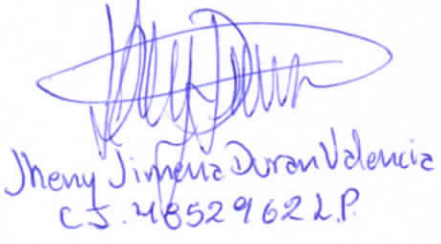 Jheny Jimena Duran Valencia
C.I. 4852962 L.P.